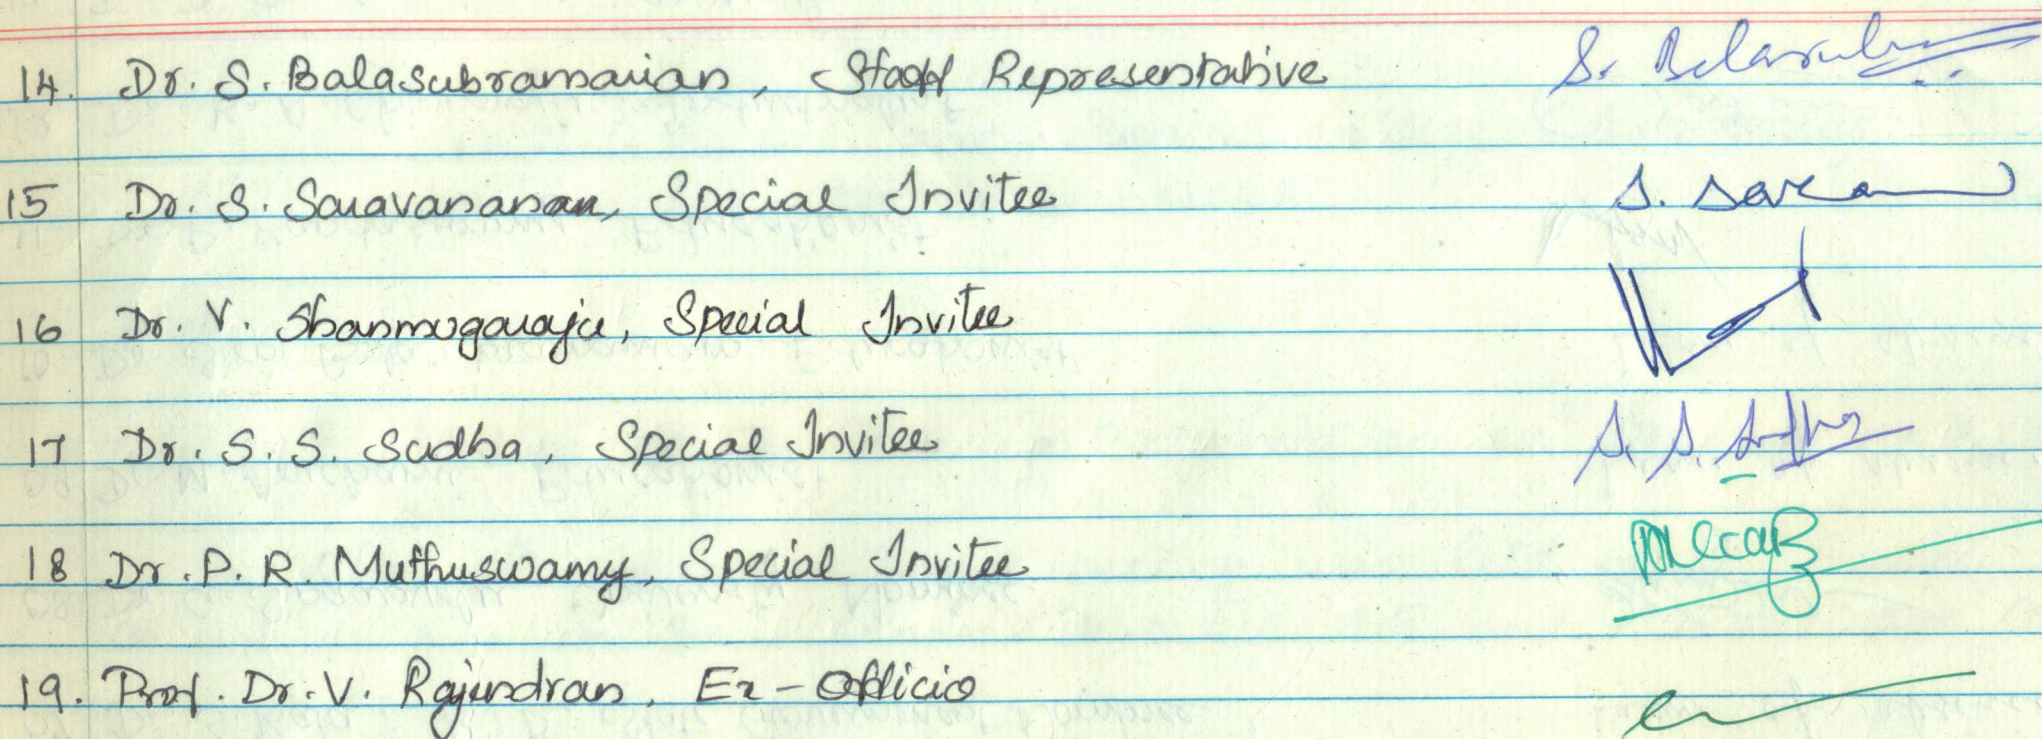 14. Dr. S. Balasubramanian, Staff Representative S. Balasub
15 Dr. S. Saravananan, Special Invitee S. Sara
16 Dr. V. Shanmugaraja, Special Invitee
17 Dr. S. S. Sudha, Special Invitee S. S. Sudha
18 Dr. P. R. Muthuswamy, Special Invitee
19. Prof. Dr. V. Rajendran, Ex-Officio